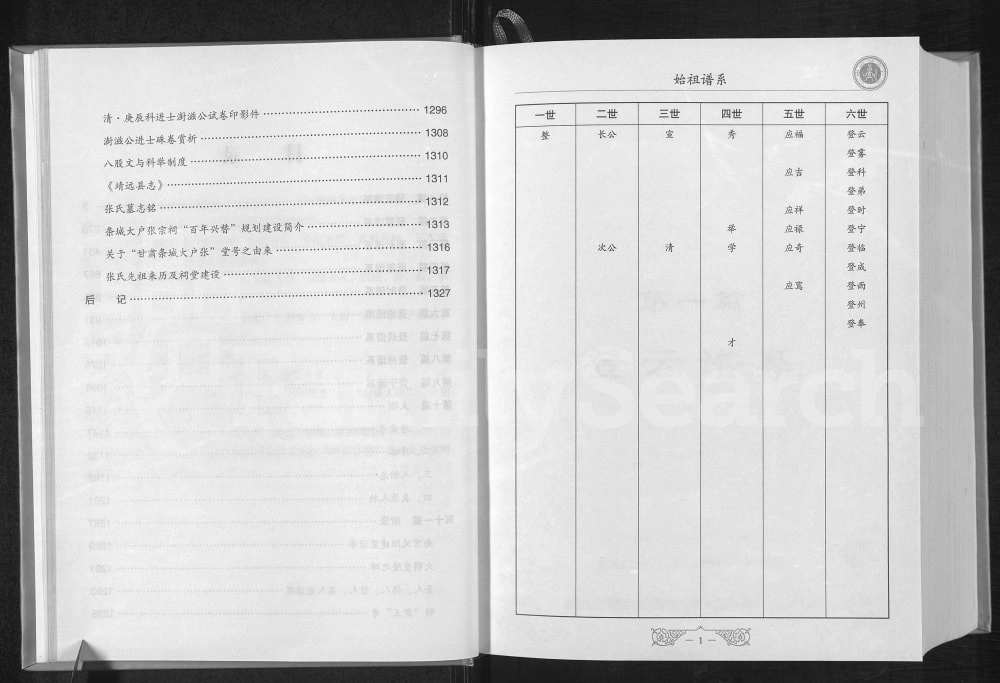 清·庚辰科进士澍滋公试卷印影件 1296
澍滋公进士硃卷赏析 1308
八股文与科举制度 1310
《靖远县志》 1311
张氏墓志铭 1312
条城大户张宗祠“百年兴替”规划建设简介 1313
关于“甘肃条城大户张”堂号之由来 1316
张氏先祖来历及祠堂建设 1317
后 记 1327
始祖谱系
一世 二世 三世 四世 五世 六世
整 长公 宣 秀 应福 登云
登雾
应吉 登科
登弟
应祥 登时
举 应禄 登宁
次公 清 学 应奇 登临
登成
应鸾 登雨
登州
登奉
才
— 1 —
ilySearch